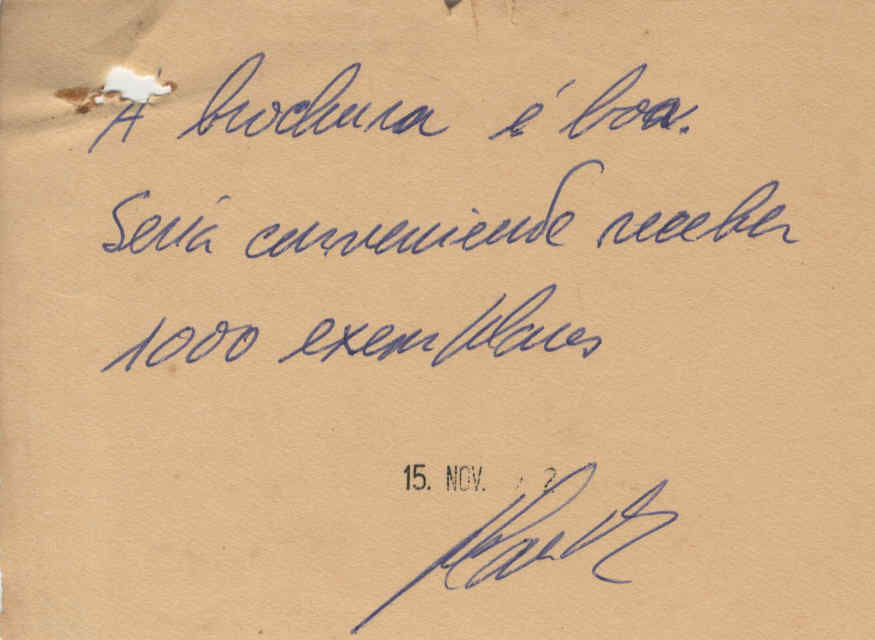 A brochura é boa.
Seria conveniente receber
1000 exemplares
15. NOV.